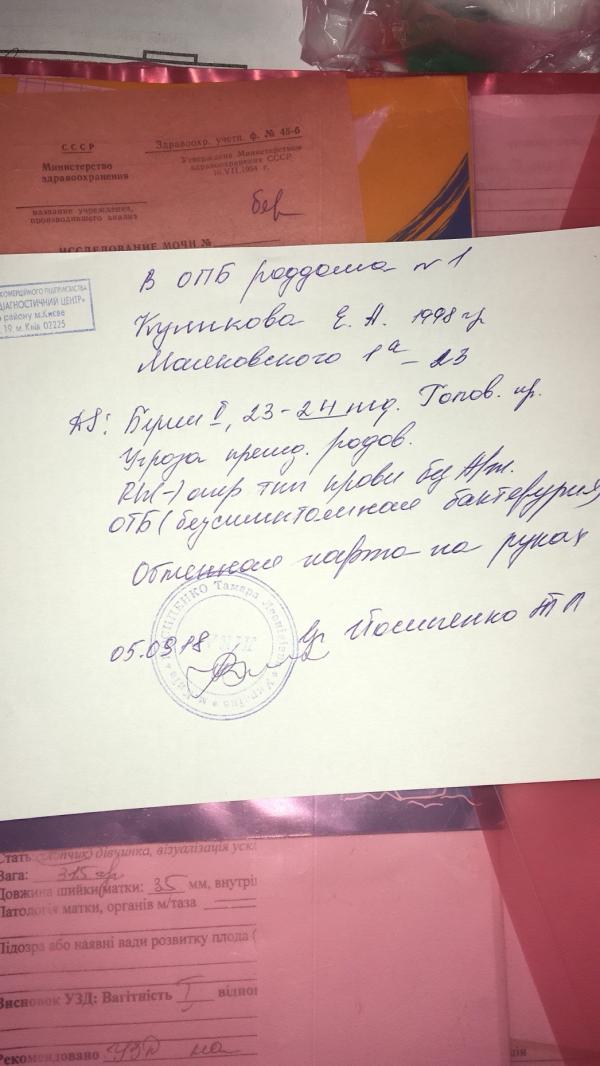 СССР
Министерство
здравоохранения
название учреждения,
производившего анализ
Здравоохр. учетн. ф. № 45-б
Утверждена Министерством
здравоохранения СССР
бер
ИССЛЕДОВАНИЕ МОЧИ №
КОМЕРЦІЙНОГО ПІДПРИЄМСТВА
ДІАГНОСТИЧНИЙ ЦЕНТР»
району м.Києва
19 м. Київ 02225
В ОПБ роддома № 1
Куликова Е. А. 1998 гр
Маяковского 1а - 23
DS: Берем II, 23-24 нед. Голов. пр.
Угроза прежд. родов.
Rh(-) отр тип крови без А/т.
ОТБ (безсимптомная бактерурия)
Обменная карта на руках
05.09.18.
Вр
Тамара
Стать: (хлопчик) дівчинка, візуалізація уск
Вага: 315 гр
Довжина шийки матки: 35 мм, внутрі
Патологія матки, органів м/таза
Підозра або наявні вади розвитку плода (
Висновок УЗД: Вагітність I відпо
Рекомендовано УЗД на